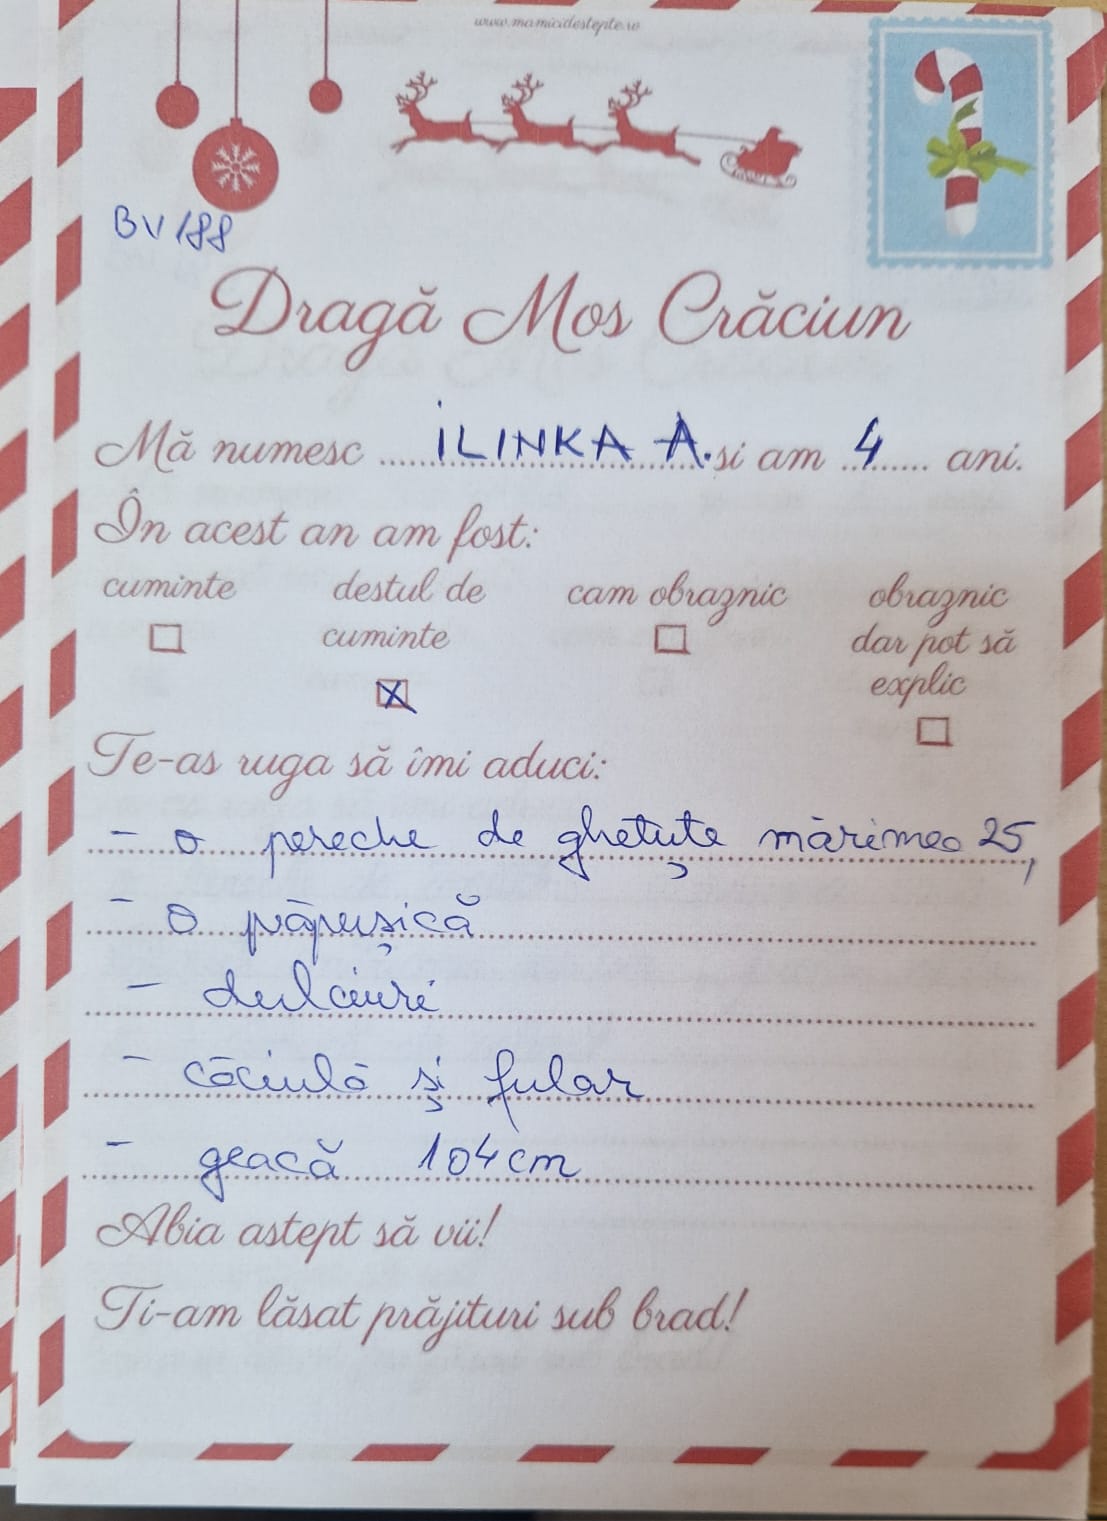 www.mamicidestepte.ro
BV188
Dragă Mos Crăciun
Mă numesc ..... ILINKA A. si am .. 4 ..... ani.
În acest an am fost:
cuminte destul de cuminte cam obraznic obraznic dar pot să explic
☐ ☒ ☐ ☐
Te-as ruga să îmi aduci:
- o pereche de ghetuțe mărimea 25,
- o păpușică
- dulciuri
- căciulă și fular
- geacă 104cm
Abia astept să vii!
Ti-am lăsat prăjituri sub brad!